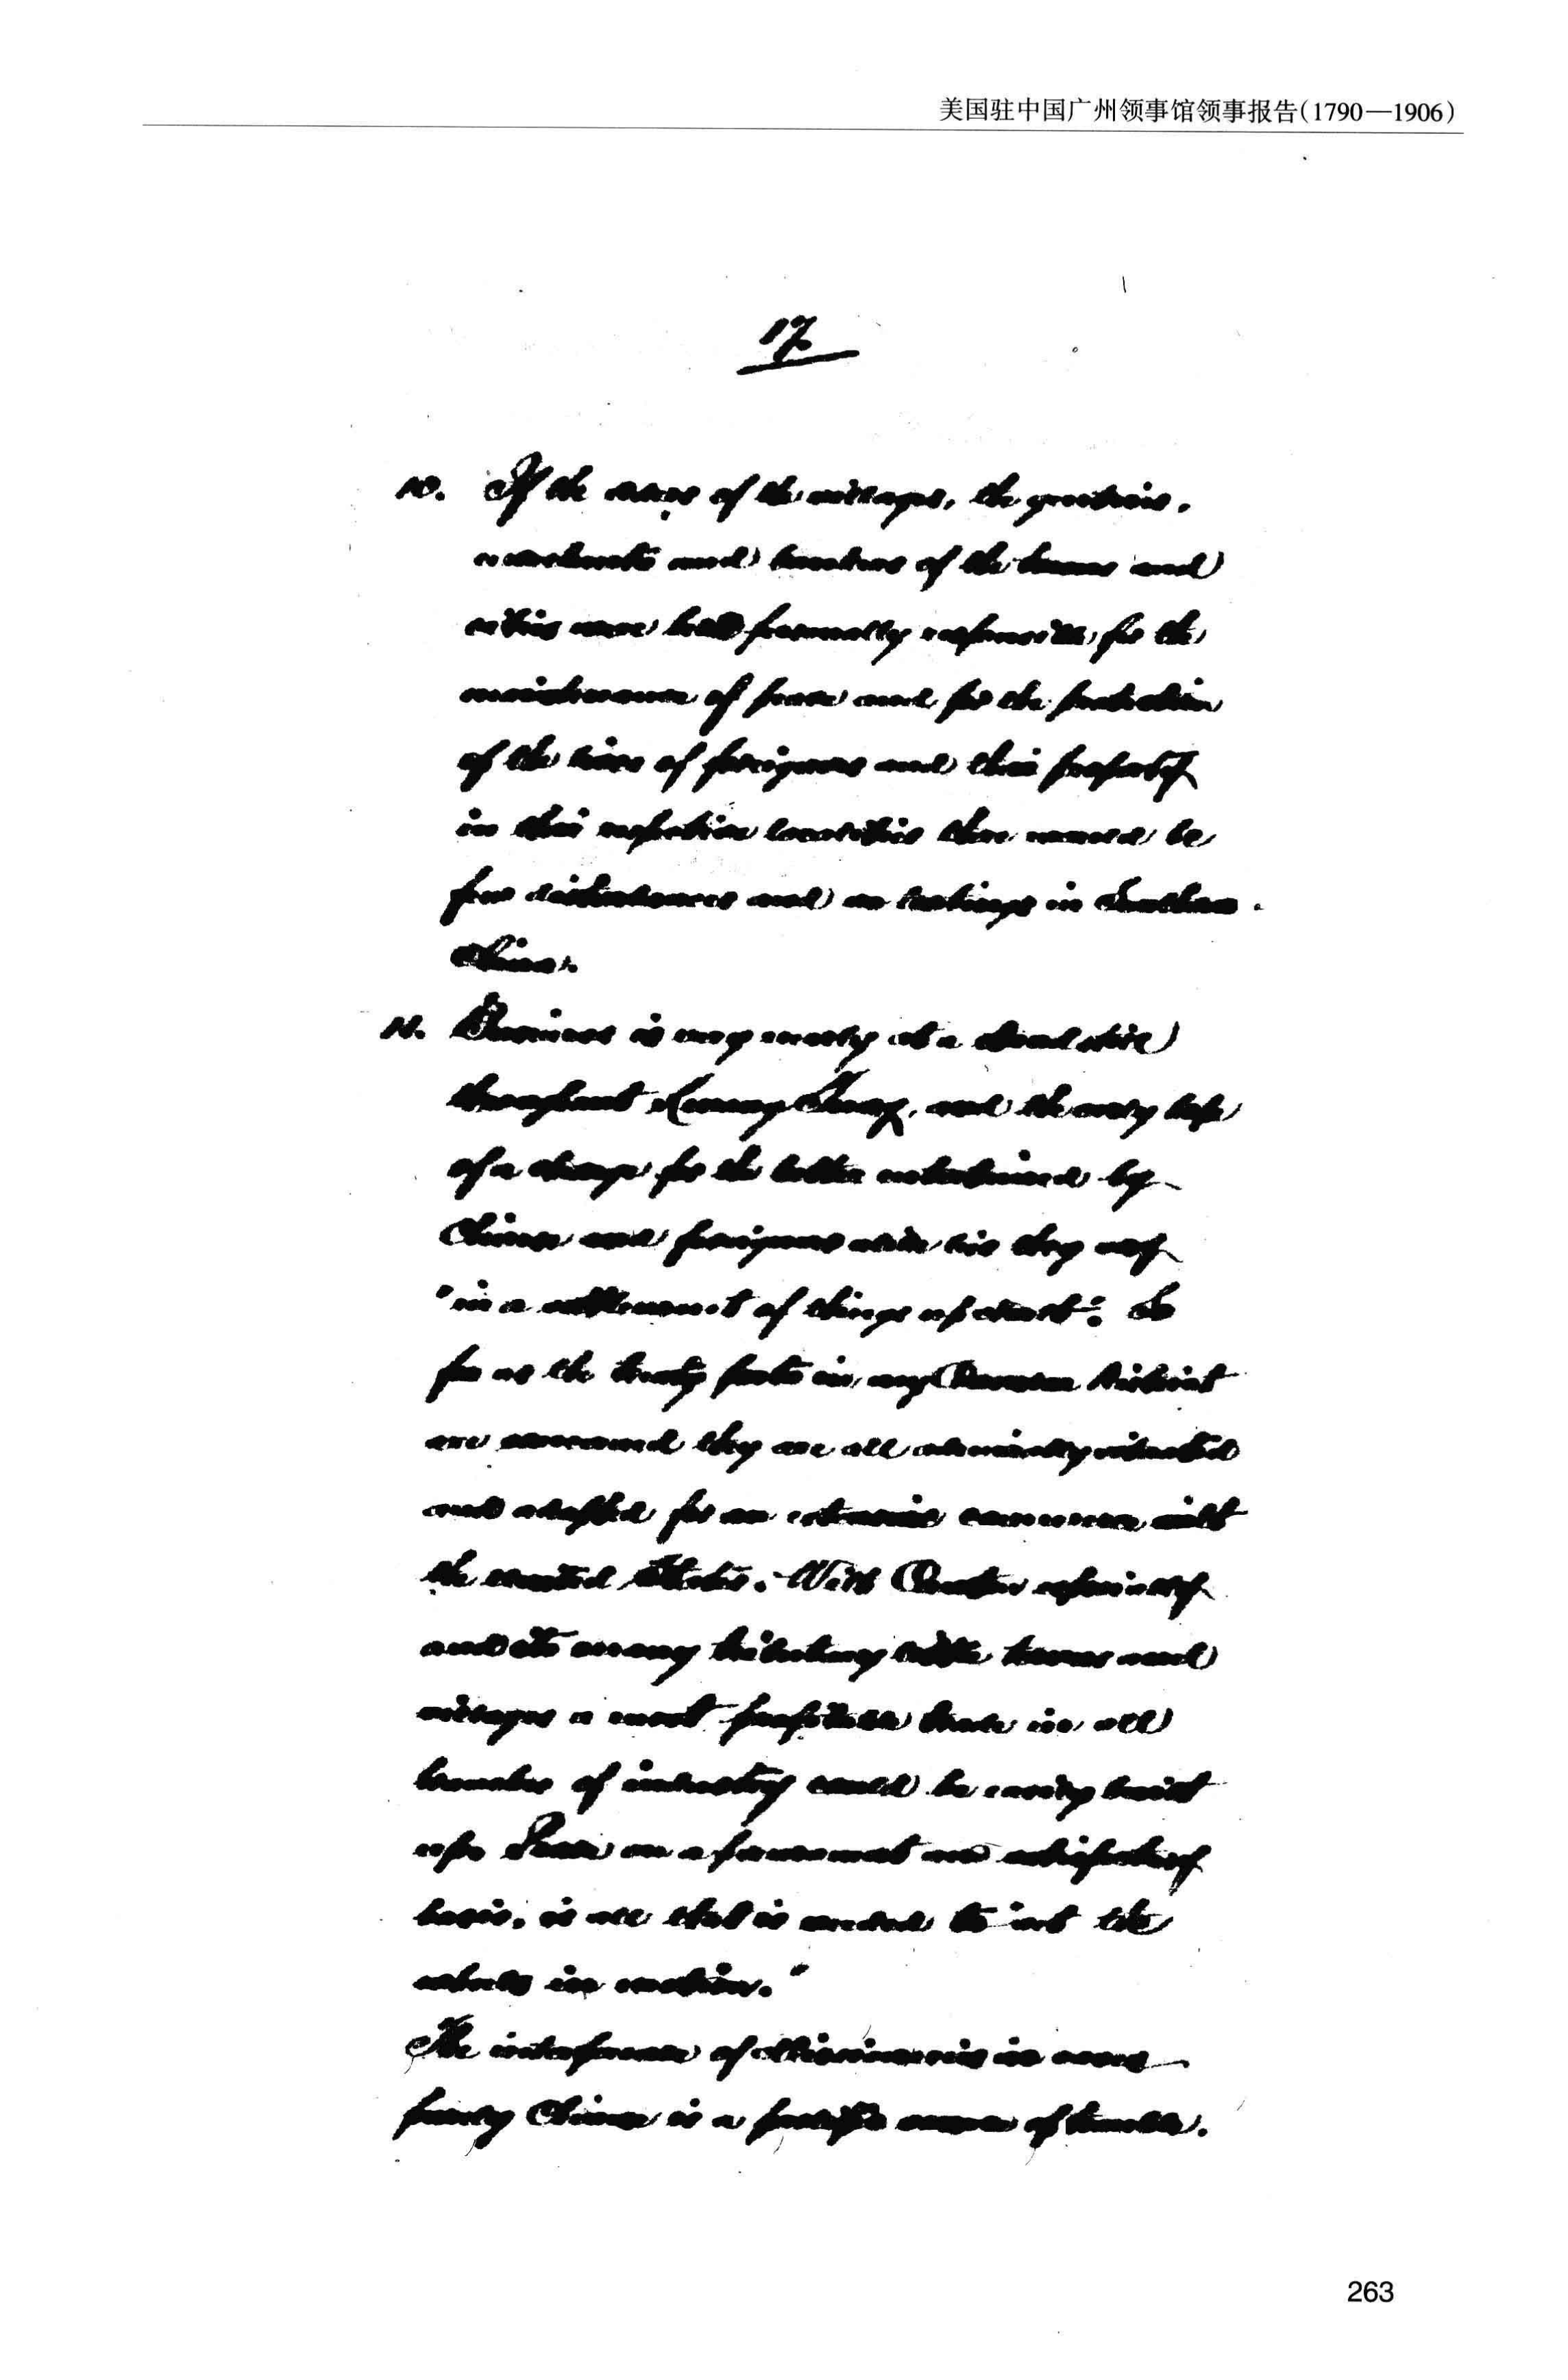 美国驻中国广州领事馆领事报告(1790—1906)
17
10. If the of the villages, the
merchants and of the towns and
cities were held responsible for the
maintenance of peace and for the protection
of the lives of foreigners and their property
in their respective localities there would be
few disturbances and no in Southern
China.
11. Business is very nearly at a stand still
throughout Kwang Tung, and the only hope
of a change for the better entertained by
Chinese and foreigners alike lies they say
"in a settlement of things up about". So
far as the treaty ports in my District
are concerned they are all admirably situated
and adapted for an extensive commerce with
the United States. With Canton especially
and its many tributary towns and
villages a most profitable trade in all
branches of industry could be easily built
up. Peace on a permanent and satisfactory
basis, is all that is needed to "set the
wheels in motion."
The interference of Missionaries in
purely Chinese is a prolific source of trouble.
263